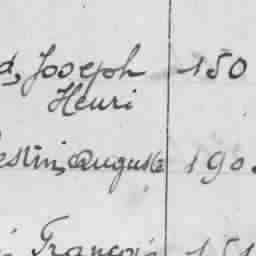 d, Joseph 150
Henri
estin, Auguste 190
François 151